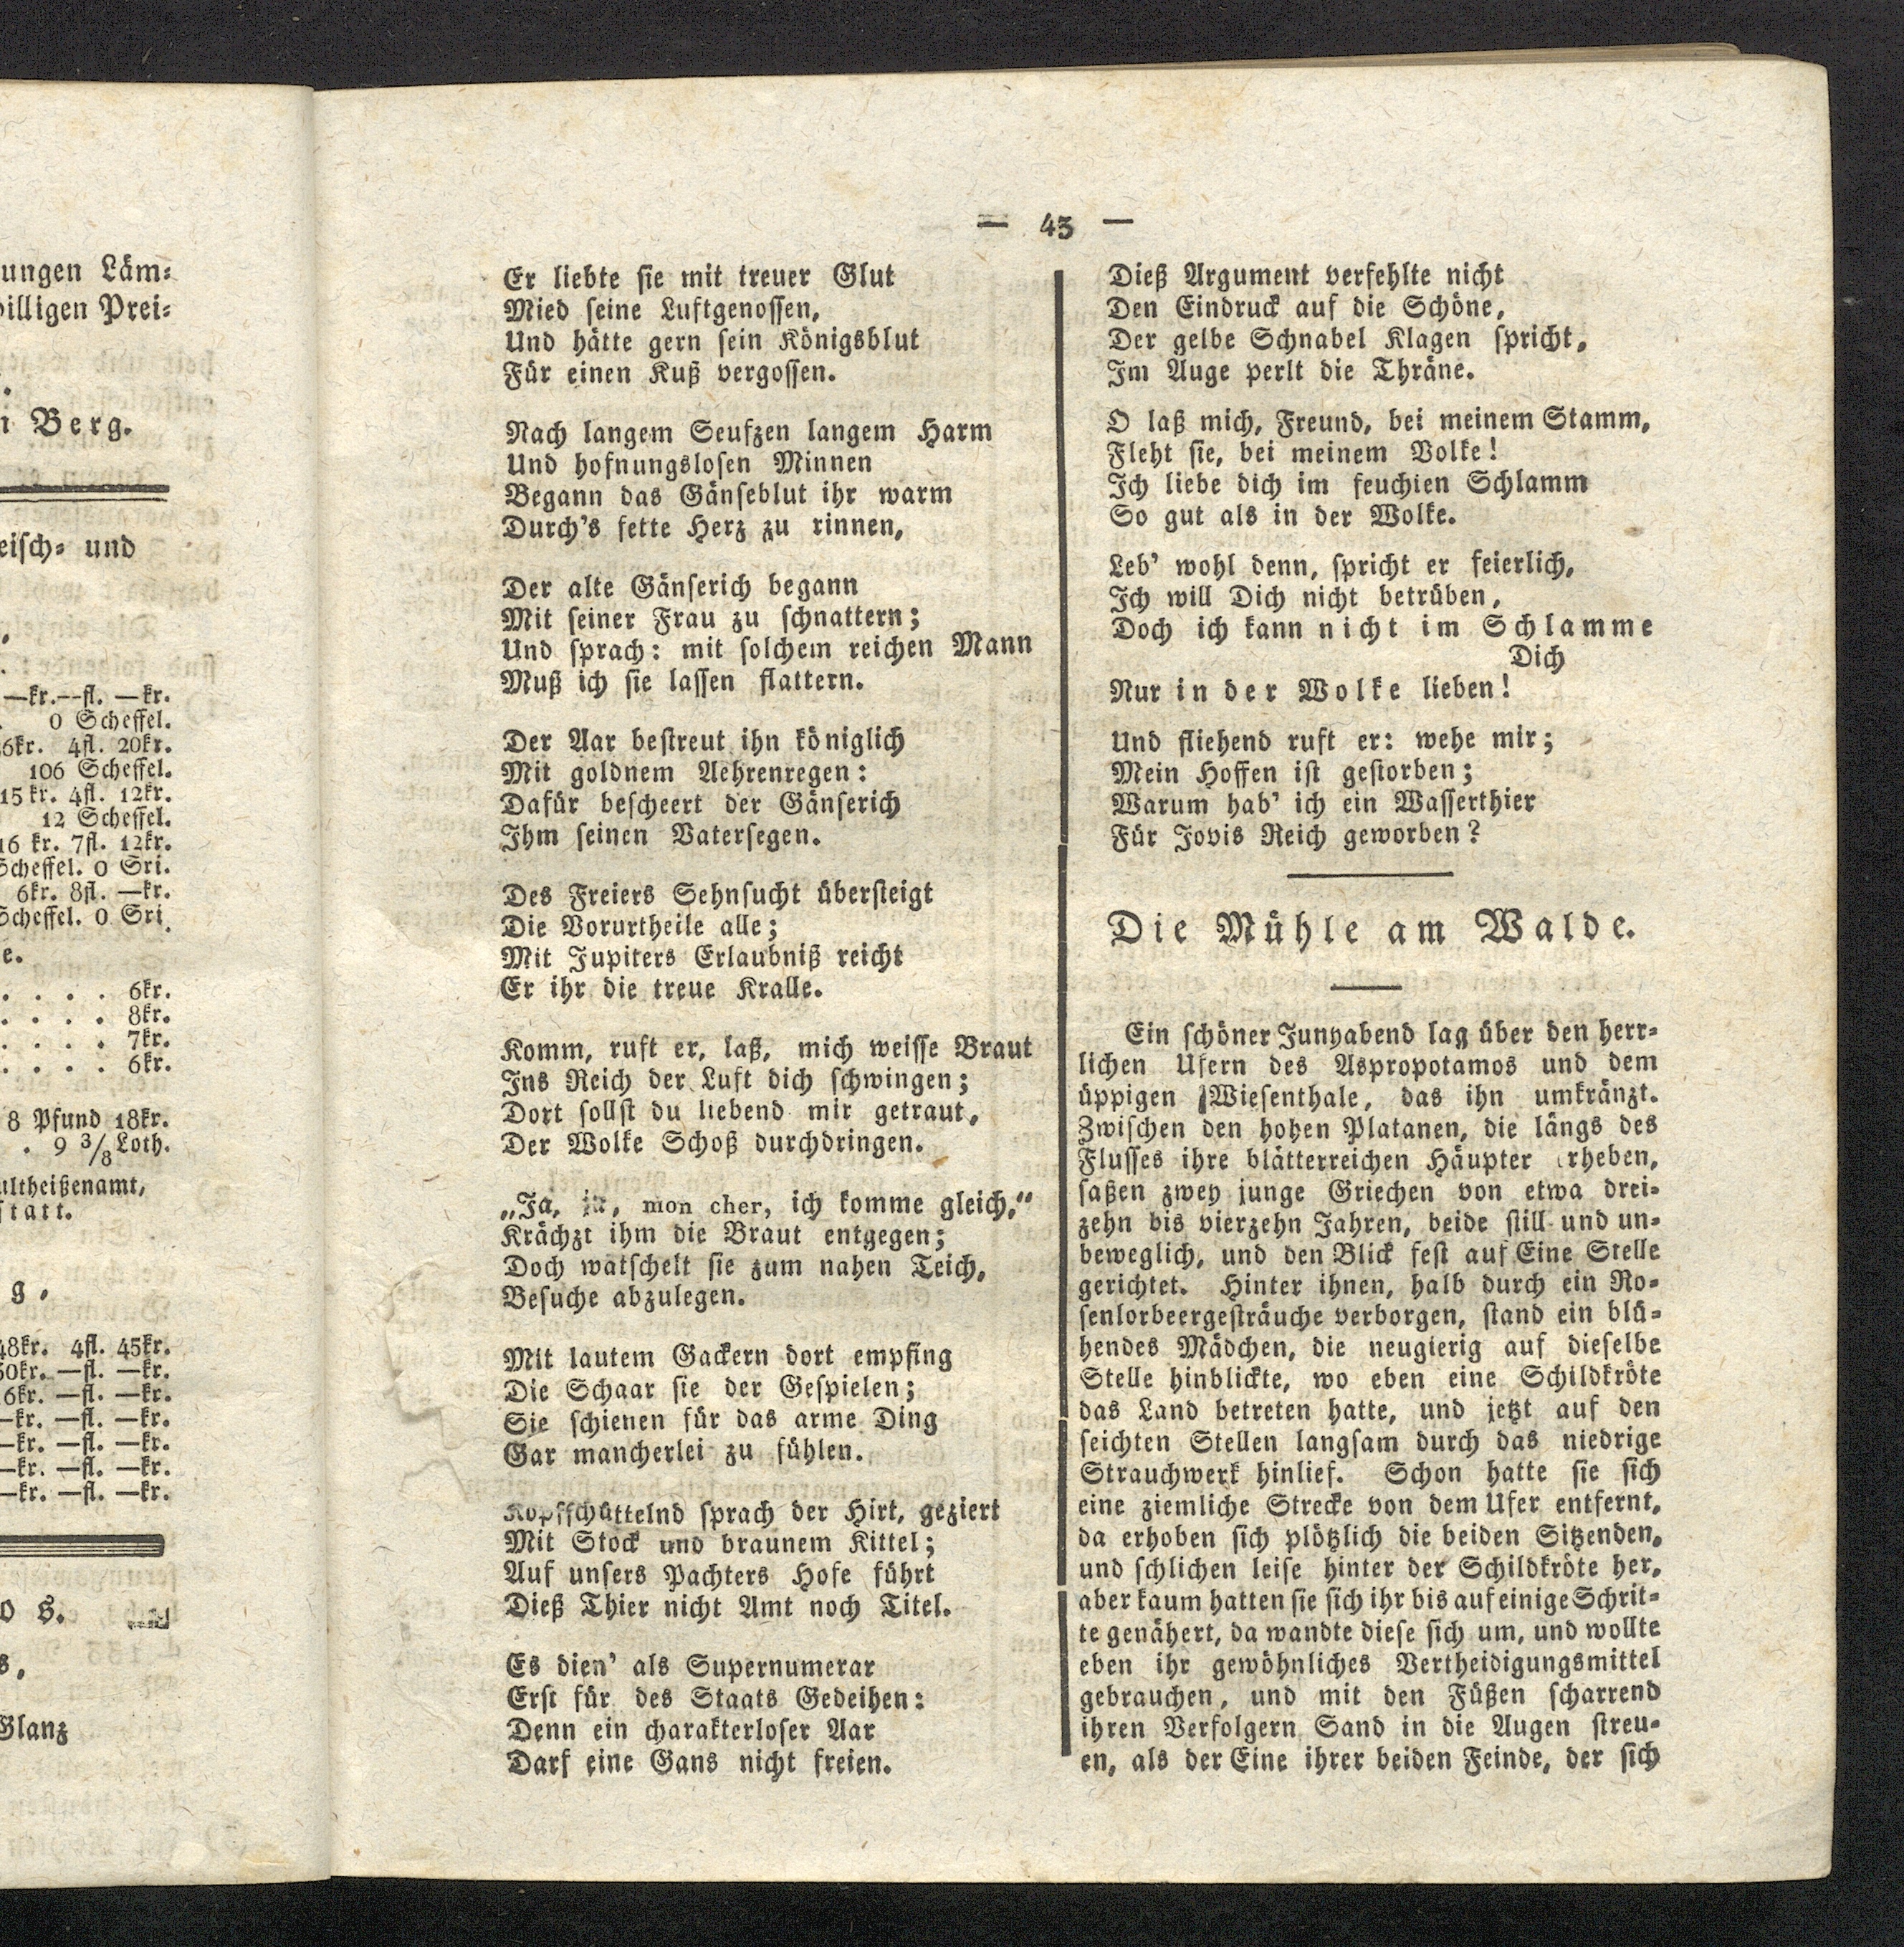 ungen Läm-
billigen Prei-
n Berg.
eisch- und
—kr.--fl. —kr.
0 Scheffel.
6kr. 4fl. 20kr.
106 Scheffel.
15 kr. 4fl. 12kr.
12 Scheffel.
16 kr. 7fl. 12kr.
Scheffel. 0 Sri.
6kr. 8fl. —kr.
Scheffel. 0 Sri.
e.
. . . . 6kr.
. . . . 8kr.
. . . . 7kr.
. . . . 6kr.
8 Pfund 18kr.
. 9 3/8 Loth.
ultheißenamt,
statt.
g.
48kr. 4fl. 45kr.
50kr. —fl. —kr.
6kr. —fl. —kr.
—kr. —fl. —kr.
—kr. —fl. —kr.
—kr. —fl. —kr.
—kr. —fl. —kr.
o s.
s,
Glanz
— 43 —
Er liebte sie mit treuer Glut
Mied seine Luftgenossen,
Und hätte gern sein Königsblut
Für einen Kuß vergossen.
Nach langem Seufzen langem Harm
Und hofnungslosen Minnen
Begann das Gänseblut ihr warm
Durch's fette Herz zu rinnen,
Der alte Gänserich begann
Mit seiner Frau zu schnattern;
Und sprach: mit solchem reichen Mann
Muß ich sie lassen flattern.
Der Aar bestreut ihn königlich
Mit goldnem Aehrenregen:
Dafür bescheert der Gänserich
Ihm seinen Vatersegen.
Des Freiers Sehnsucht übersteigt
Die Vorurtheile alle;
Mit Jupiters Erlaubniß reicht
Er ihr die treue Kralle.
Komm, ruft er, laß, mich weisse Braut
Ins Reich der Luft dich schwingen;
Dort sollst du liebend mir getraut,
Der Wolke Schoß durchdringen.
„Ja, ja, mon cher, ich komme gleich,“
Krächzt ihm die Braut entgegen;
Doch watschelt sie zum nahen Teich,
Besuche abzulegen.
Mit lautem Gackern dort empfing
Die Schaar sie der Gespielen;
Sie schienen für das arme Ding
Gar mancherlei zu fühlen.
Kopfschüttelnd sprach der Hirt, geziert
Mit Stock und braunem Kittel;
Auf unsers Pachters Hofe führt
Dieß Thier nicht Amt noch Titel.
Es dien' als Supernumerar
Erst für des Staats Gedeihen:
Denn ein charakterloser Aar
Darf eine Gans nicht freien.
Dieß Argument verfehlte nicht
Den Eindruck auf die Schöne,
Der gelbe Schnabel Klagen spricht,
Im Auge perlt die Thräne.
O laß mich, Freund, bei meinem Stamm,
Fleht sie, bei meinem Volke!
Ich liebe dich im feuchten Schlamm
So gut als in der Wolke.
Leb' wohl denn, spricht er feierlich,
Ich will Dich nicht betrüben,
Doch ich kann nicht im Schlamme
Dich
Nur in der Wolke lieben!
Und fliehend ruft er: wehe mir;
Mein Hoffen ist gestorben;
Warum hab' ich ein Wasserthier
Für Jovis Reich geworben?
Die Mühle am Walde.
Ein schöner Junyabend lag über den herr-
lichen Ufern des Aspropotamos und dem
üppigen Wiesenthale, das ihn umkränzt.
Zwischen den hohen Platanen, die längs des
Flusses ihre blätterreichen Häupter erheben,
saßen zwey junge Griechen von etwa drei-
zehn bis vierzehn Jahren, beide still und un-
beweglich, und den Blick fest auf Eine Stelle
gerichtet. Hinter ihnen, halb durch ein Ro-
senlorbeergesträuche verborgen, stand ein blü-
hendes Mädchen, die neugierig auf dieselbe
Stelle hinblickte, wo eben eine Schildkröte
das Land betreten hatte, und jetzt auf den
seichten Stellen langsam durch das niedrige
Strauchwerk hinlief. Schon hatte sie sich
eine ziemliche Strecke von dem Ufer entfernt,
da erhoben sich plötzlich die beiden Sitzenden,
und schlichen leise hinter der Schildkröte her,
aber kaum hatten sie sich ihr bis auf einige Schrit-
te genähert, da wandte diese sich um, und wollte
eben ihr gewöhnliches Vertheidigungsmittel
gebrauchen, und mit den Füßen scharrend
ihren Verfolgern Sand in die Augen streu-
en, als der Eine ihrer beiden Feinde, der sich